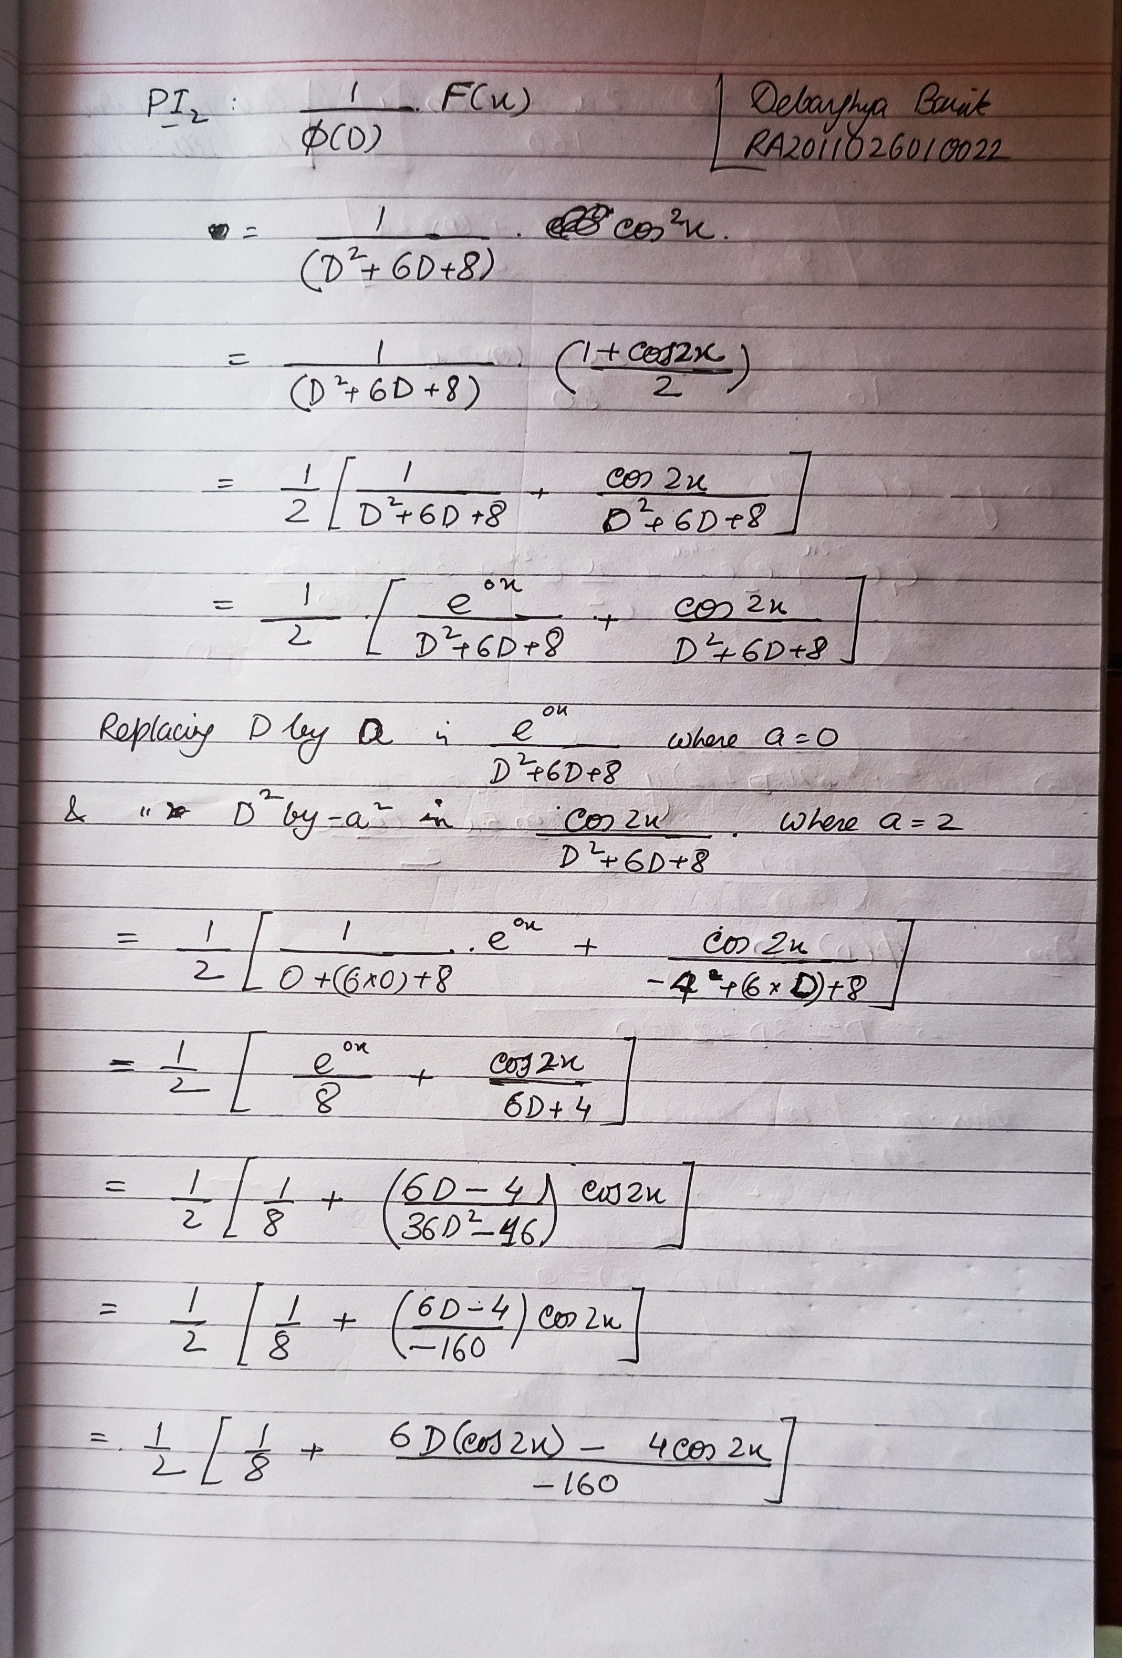 PI₂ : 1/ϕ(D) . F(x)
Debarghya Barik
RA2011026010022
= 1/(D²+6D+8) . cos²x.
= 1/(D²+6D+8) . ((1+cos2x)/2)
= 1/2 [ 1/(D²+6D+8) + cos 2x/(D²+6D+8) ]
= 1/2 . [ e^(0x)/(D²+6D+8) + cos 2x/(D²+6D+8) ]
Replacing D by a in e^(0x)/(D²+6D+8) where a=0
& " D² by -a² in cos 2x/(D²+6D+8) . where a=2
= 1/2 [ 1/(0+(6×0)+8) . e^(0x) + cos 2x/(-4+(6×D)+8) ]
= 1/2 [ e^(0x)/8 + cos 2x/(6D+4) ]
= 1/2 [ 1/8 + ((6D-4)/(36D²-16)) cos2x ]
= 1/2 [ 1/8 + ((6D-4)/-160) cos 2x ]
=. 1/2 [ 1/8 + (6D(cos2x) - 4cos 2x)/-160 ]